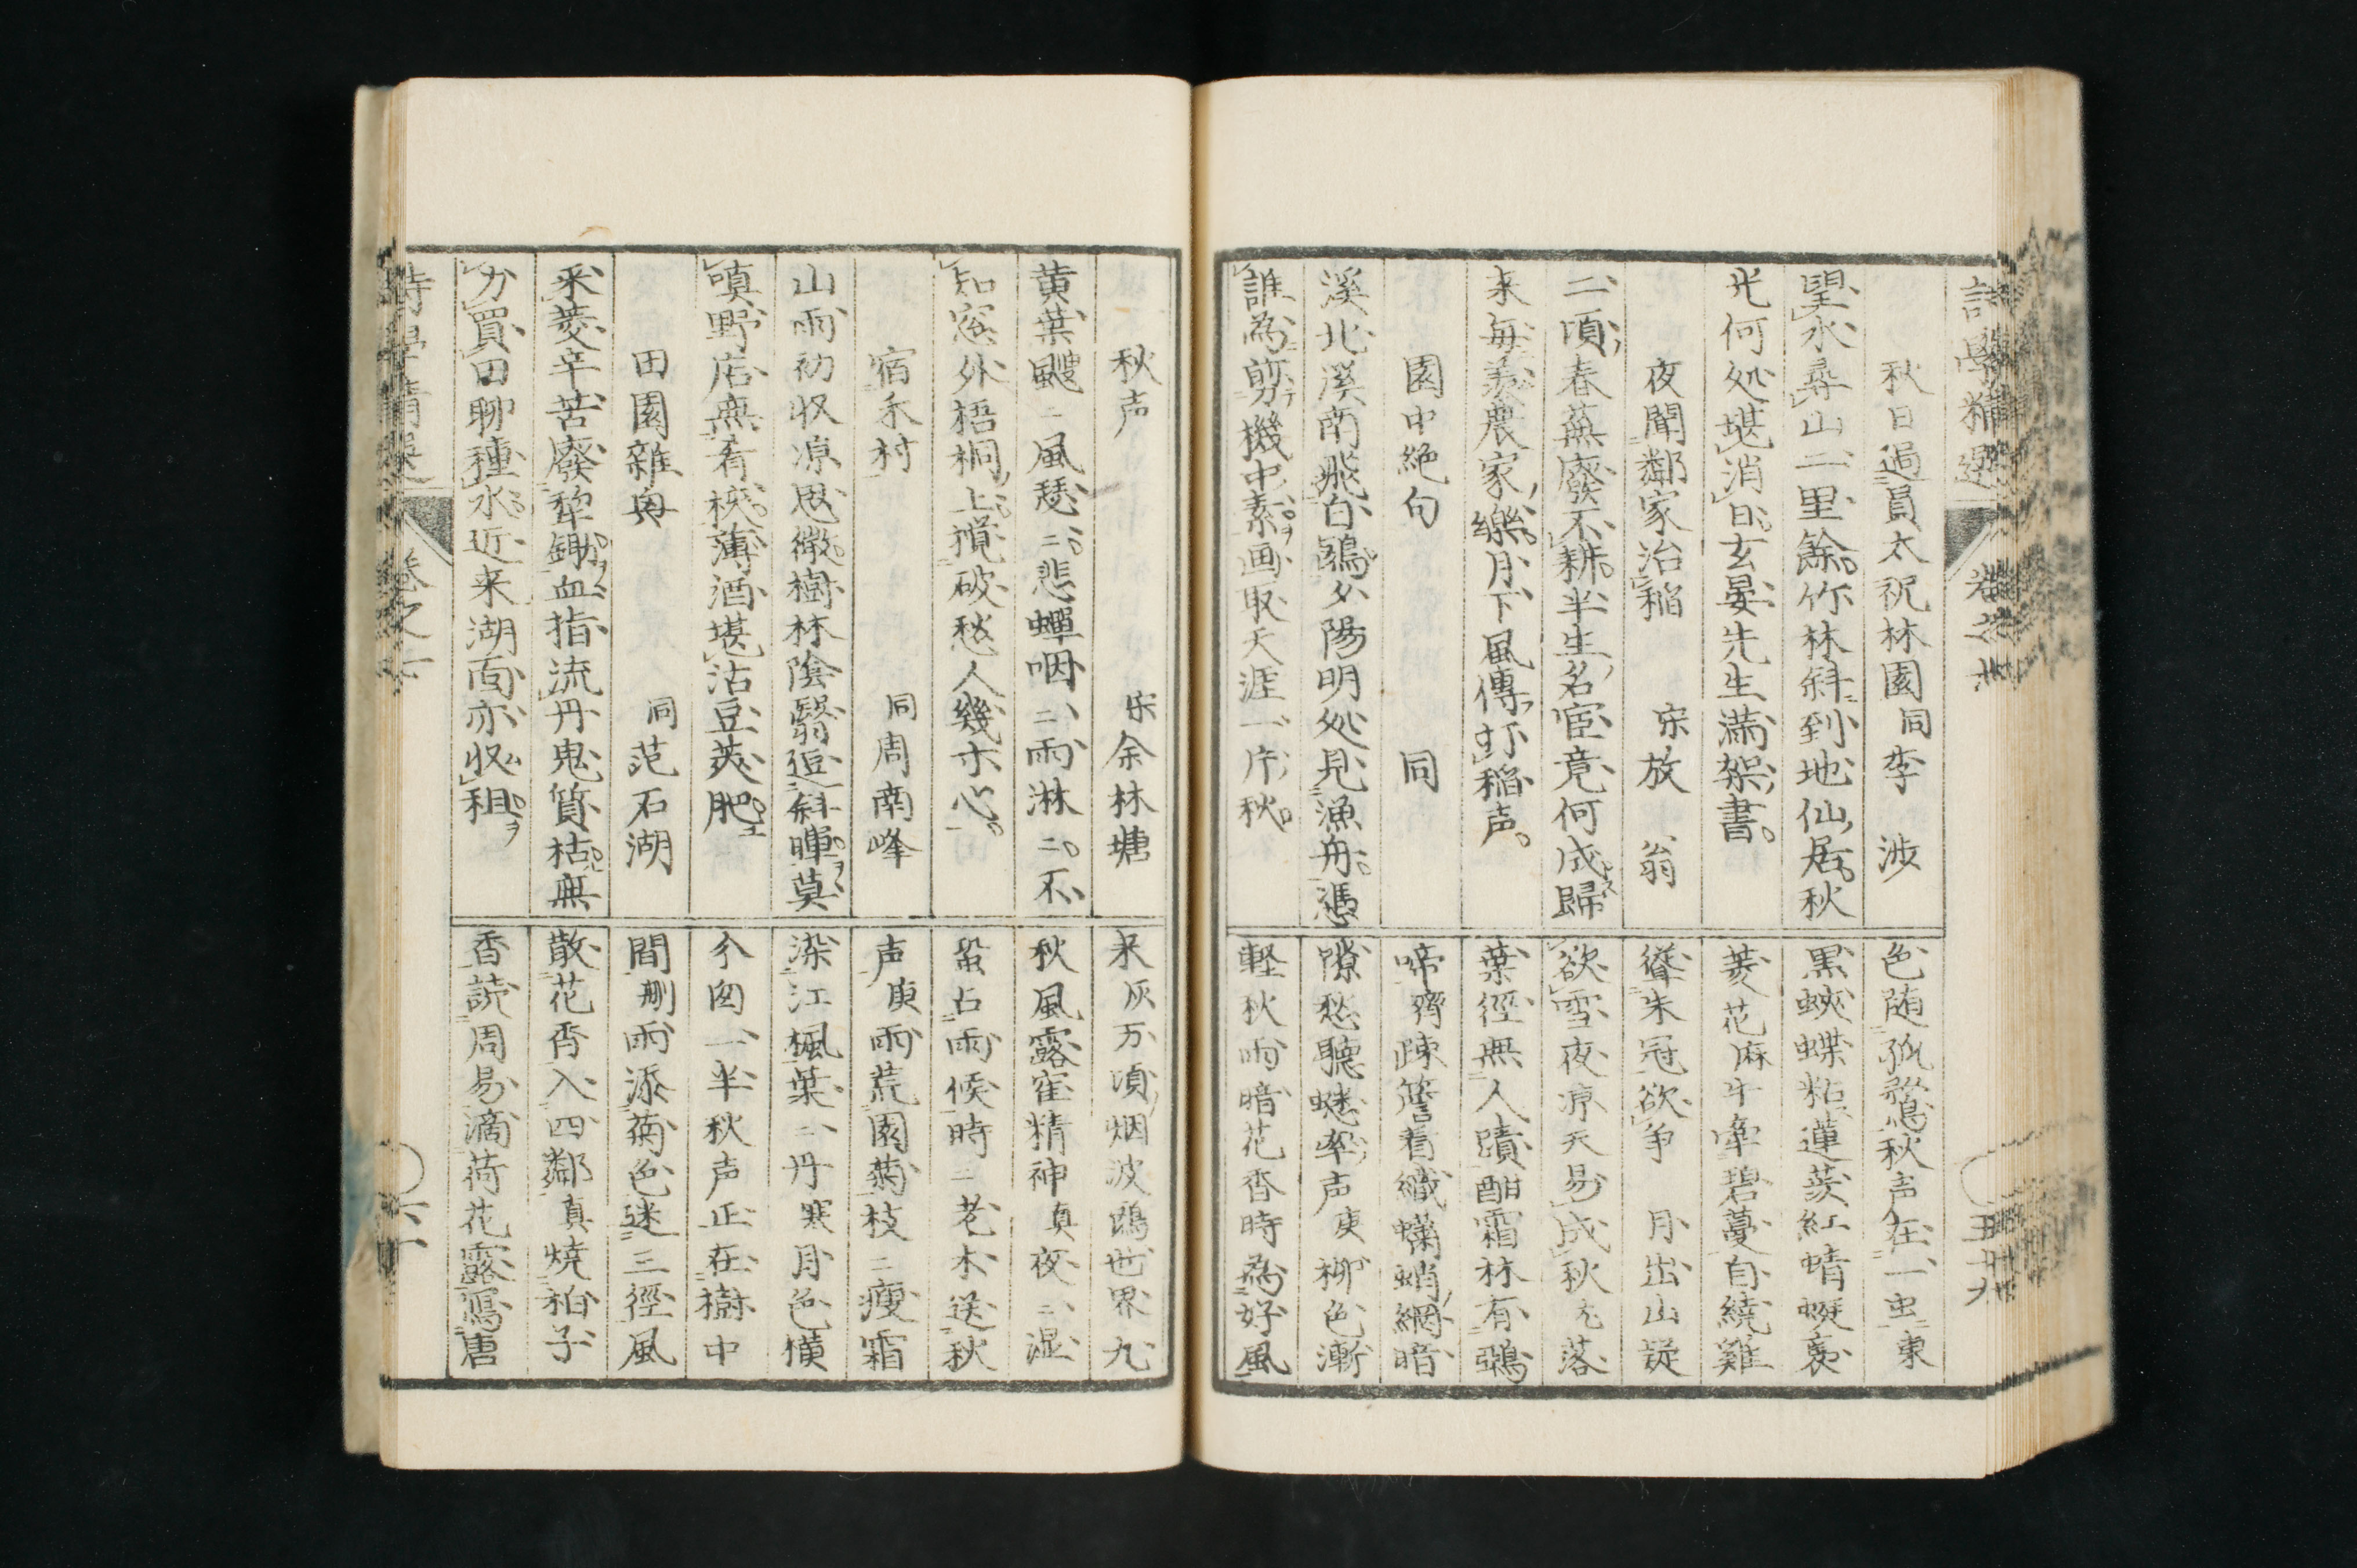 秋日過員太祝林園 同 李 渉
望水尋山二里餘竹林斜到地仙居秋
光何処堪消日玄晏先生満架書
夜聞鄰家治稲 宋 放翁
二頃春蕪廢不耕半生名宦竟何成歸
来毎羨農家樂月下風傳打稲声
園中絶句 同
溪北溪南飛白鷗夕陽明処見漁舟憑
誰為剪機中素画取天涯一片秋
色随孤鶩秋声在一虫東
黒蛺蝶粘蓮蘂紅蜻蜓裊
菱花麻牛牽碧蔓自繞雞
聳朱冠欲争 月出山疑
欲雪夜凉天易成秋尤落
葉徑無人蹟酣霜林有鴉
啼齊踈簷看織蠨蛸網暗
隙愁聽蟋蟀声庚柳色漸
軽秋雨暗花香時為好風
秋声 宋 余林塘
黄葉颼二風瑟二悲蟬咽二雨淋二不
知窓外梧桐上攪破愁人幾寸心
宿禾村 同 周南峰
山雨初収凉思微樹林陰翳逗斜暉莫
嗔野店無肴核薄酒堪沽豆莢肥
田園雜興 同 范石湖
采菱辛苦廢犂鋤血指流丹鬼質枯無
力買田聊種水近来湖面亦収租
来灰万頃烟波鷗世界九
秋風露寉精神真夜二湿
蛩占雨候時二老木送秋
声庚雨荒園菊枝二瘦霜
染江楓葉二丹寒月色横
分囱一半秋声正在樹中
間刪雨添菊色迷三徑風
散花香入四鄰真焼柏子
香読周易滴荷花露寫唐
詩學精選 卷之十
六十一